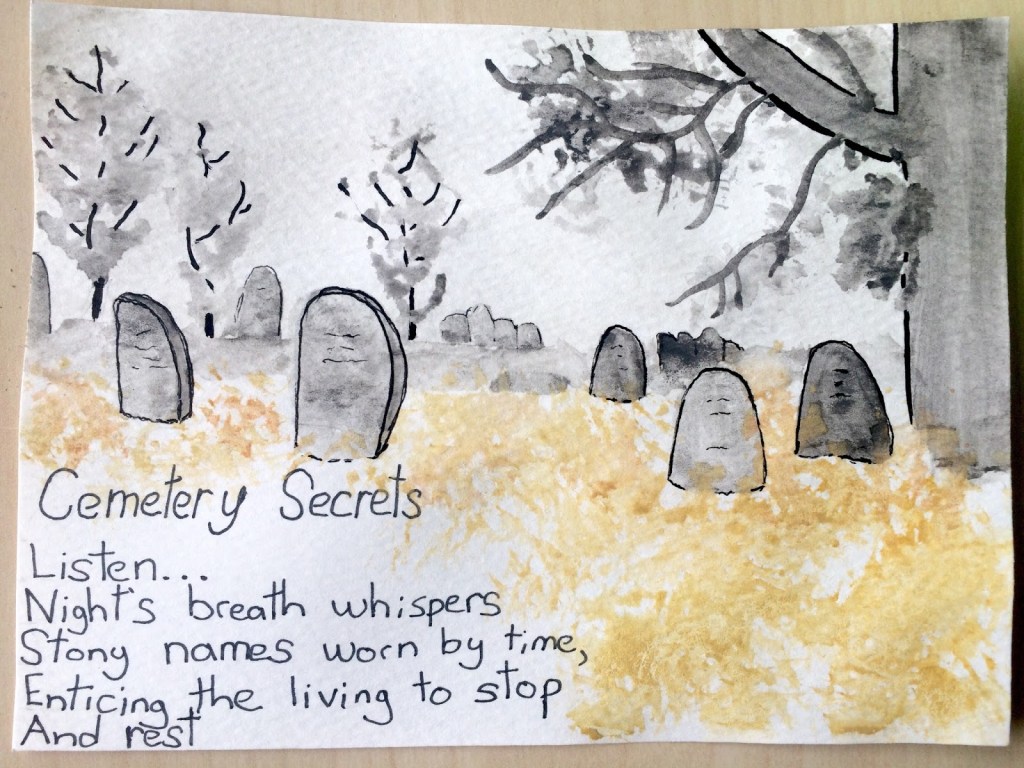 Cemetery Secrets
Listen...
Night's breath whispers
Stony names worn by time,
Enticing the living to stop
And rest